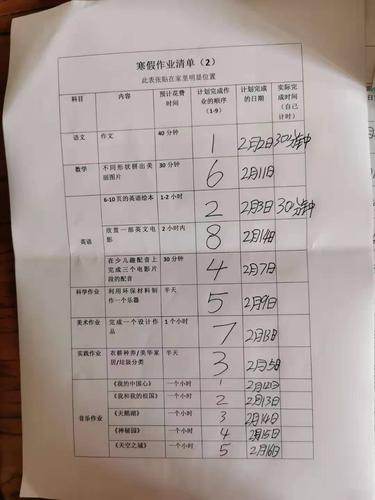 寒假作业清单（2）
此表张贴在家里明显位置
科目 内容 预计花费时间 计划完成作业的顺序（1-9） 计划完成的日期 实际完成时间（自己计时）
语文 作文 40分钟 1 2月2日 30分钟
数学 不同形状拼出美丽图片 30分钟 6 2月11日
英语 6-10页的英语绘本 1-2小时 2 2月3日 30分钟
欣赏一部英文电影 2小时内 8 2月14日
在少儿趣配音上完成三个电影片段的配音 30分钟 4 2月7日
科学作业 利用环保材料制作一个乐器 半天 5 2月9日
美术作业 完成一个设计作品 1个小时 7 2月13日
实践作业 农耕种养/美华家居/垃圾分类 半天 3 2月5日
音乐作业 《我的中国心》 一个小时 1 2月12日
《我和我的祖国》 一个小时 2 2月13日
《天鹅湖》 一个小时 3 2月14日
《神秘园》 一个小时 4 2月15日
《天空之城》 一个小时 5 2月16日